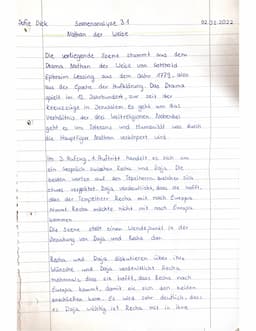 Sofie Dick Szenenanalyse 3.1 02.11.2022
Nathan der Weise
Die vorliegende Szene stammt aus dem
Drama Nathan der Weise von Gotthold
Ephraim Lessing, aus dem Jahre 1779, also
aus der Epoche der Aufklärung. Das Drama
spielt im 12. Jahrhundert, zur Zeit der
Kreuzzüge in Jerusalem. Es geht um das
Verhältnis der drei Weltreligionen. Nebenbei
geht es um Toleranz und Humanität was durch
die Hauptfigur Nathan verkörpert wird.
Im 3. Aufzug, 1. Auftritt handelt es sich um
ein Gespräch zwischen Recha und Daja. Die
beiden warten auf den Tempelherrn welcher sich
etwas verspätet. Daja verdeutlicht, dass sie hofft,
dass der Tempelherr Recha mit nach Europa
nimmt. Recha möchte nicht mit nach Europa
kommen.
Die Szene stellt einen Wendepunkt in der
Beziehung von Daja und Recha dar.
Recha und Daja diskutieren über ihre
Wünsche und Daja verdeutlicht Recha
mehrmals, dass sie hofft, dass Recha nach
Europa kommt, damit sie sich den beiden
anschließen kann. Es wird sehr deutlich, dass
es Daja wichtig ist Recha mit in ihre